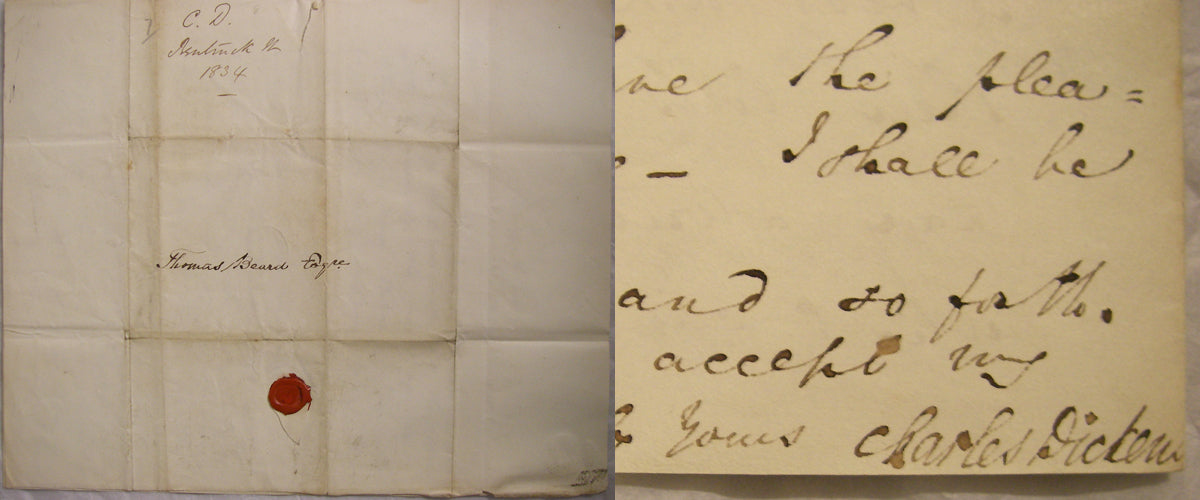 C. D.
Bentinck St
1834
Thomas Beard Esqre
the plea=
I shall be
and so forth.
accept my
Yours Charles Dickens